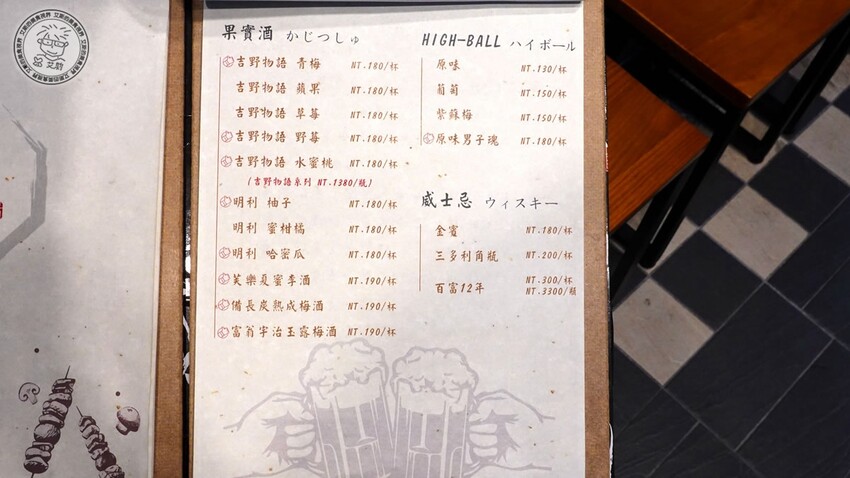 果實酒 かじつしゅ
吉野物語 青梅 NT.180/杯
吉野物語 蘋果 NT.180/杯
吉野物語 草莓 NT.180/杯
吉野物語 野莓 NT.180/杯
吉野物語 水蜜桃 NT.180/杯
(吉野物語系列 NT.1380/瓶)
明利 柚子 NT.180/杯
明利 蜜柑橘 NT.180/杯
明利 哈密瓜 NT.180/杯
芙樂夏蜜李酒 NT.190/杯
備長炭熟成梅酒 NT.190/杯
富翁宇治玉露梅酒 NT.190/杯
HIGH-BALL ハイボール
原味 NT.130/杯
葡萄 NT.150/杯
紫蘇梅 NT.150/杯
原味男子魂 NT.180/杯
威士忌 ウィスキー
金賓 NT.180/杯
三多利角瓶 NT.200/杯
百富12年 NT.300/杯
NT.3300/瓶